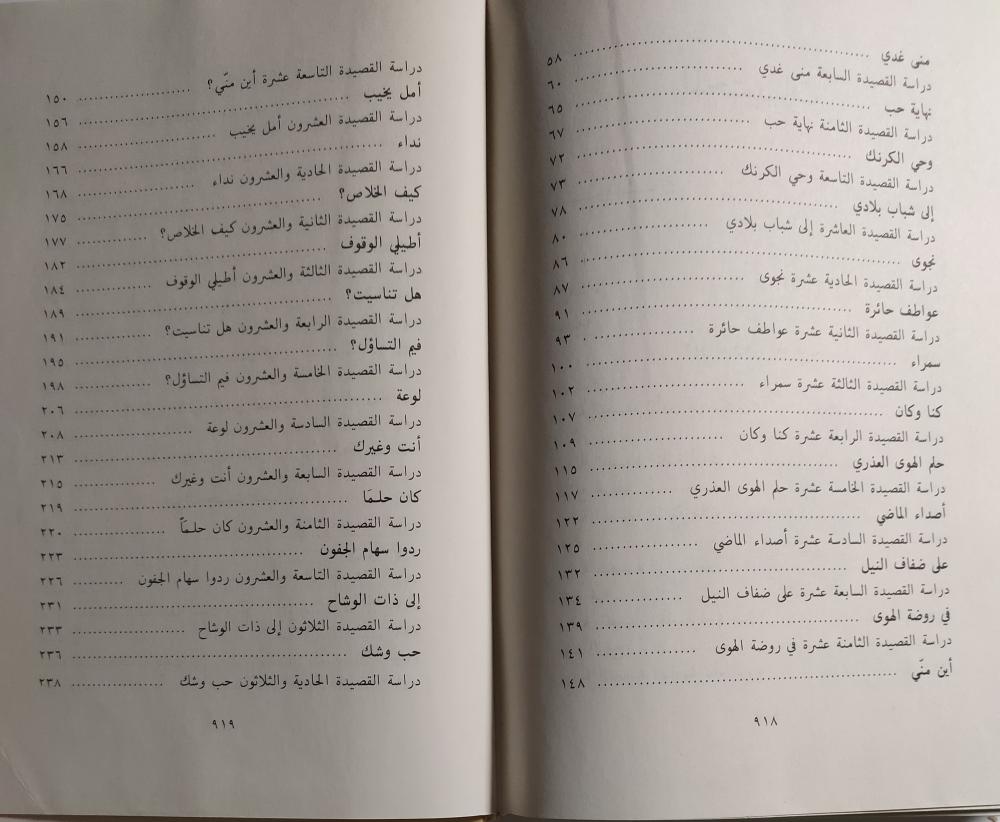 منى غدي ........ ٥٨
دراسة القصيدة السابعة منى غدي ........ ٦٠
نهاية حب ........ ٦٥
دراسة القصيدة الثامنة نهاية حب ........ ٦٧
وحي الكرنك ........ ٧٢
دراسة القصيدة التاسعة وحي الكرنك ........ ٧٣
إلى شباب بلادي ........ ٧٨
دراسة القصيدة العاشرة إلى شباب بلادي ........ ٨٠
نجوى ........ ٨٦
دراسة القصيدة الحادية عشرة نجوى ........ ٨٧
عواطف حائرة ........ ٩١
دراسة القصيدة الثانية عشرة عواطف حائرة ........ ٩٣
سمراء ........ ١٠٠
دراسة القصيدة الثالثة عشرة سمراء ........ ١٠٢
كنا وكان ........ ١٠٧
دراسة القصيدة الرابعة عشرة كنا وكان ........ ١٠٩
حلم الهوى العذري ........ ١١٥
دراسة القصيدة الخامسة عشرة حلم الهوى العذري ........ ١١٧
أصداء الماضي ........ ١٢٢
دراسة القصيدة السادسة عشرة أصداء الماضي ........ ١٢٥
على ضفاف النيل ........ ١٣٢
دراسة القصيدة السابعة عشرة على ضفاف النيل ........ ١٣٤
في روضة الهوى ........ ١٣٩
دراسة القصيدة الثامنة عشرة في روضة الهوى ........ ١٤١
أين منّي ........ ١٤٨
٩١٨
دراسة القصيدة التاسعة عشرة أين منّي؟ ........ ١٥٠
أمل يخيب ........ ١٥٦
دراسة القصيدة العشرون أمل يخيب ........ ١٥٨
نداء ........ ١٦٦
دراسة القصيدة الحادية والعشرون نداء ........ ١٦٨
كيف الخلاص؟ ........ ١٧٥
دراسة القصيدة الثانية والعشرون كيف الخلاص؟ ........ ١٧٧
أطيلي الوقوف ........ ١٨٢
دراسة القصيدة الثالثة والعشرون أطيلي الوقوف ........ ١٨٤
هل تناسيت؟ ........ ١٨٩
دراسة القصيدة الرابعة والعشرون هل تناسيت؟ ........ ١٩١
فيم التساؤل؟ ........ ١٩٥
دراسة القصيدة الخامسة والعشرون فيم التساؤل؟ ........ ١٩٨
لوعة ........ ٢٠٦
دراسة القصيدة السادسة والعشرون لوعة ........ ٢٠٨
أنت وغيرك ........ ٢١٣
دراسة القصيدة السابعة والعشرون أنت وغيرك ........ ٢١٥
كان حلمَا ........ ٢١٩
دراسة القصيدة الثامنة والعشرون كان حلمـاً ........ ٢٢٠
ردوا سهام الجفون ........ ٢٢٣
دراسة القصيدة التاسعة والعشرون ردوا سهام الجفون ........ ٢٢٦
إلى ذات الوشاح ........ ٢٣١
دراسة القصيدة الثلاثون إلى ذات الوشاح ........ ٢٣٣
حب وشك ........ ٢٣٦
دراسة القصيدة الحادية والثلاثون حب وشك ........ ٢٣٨
٩١٩